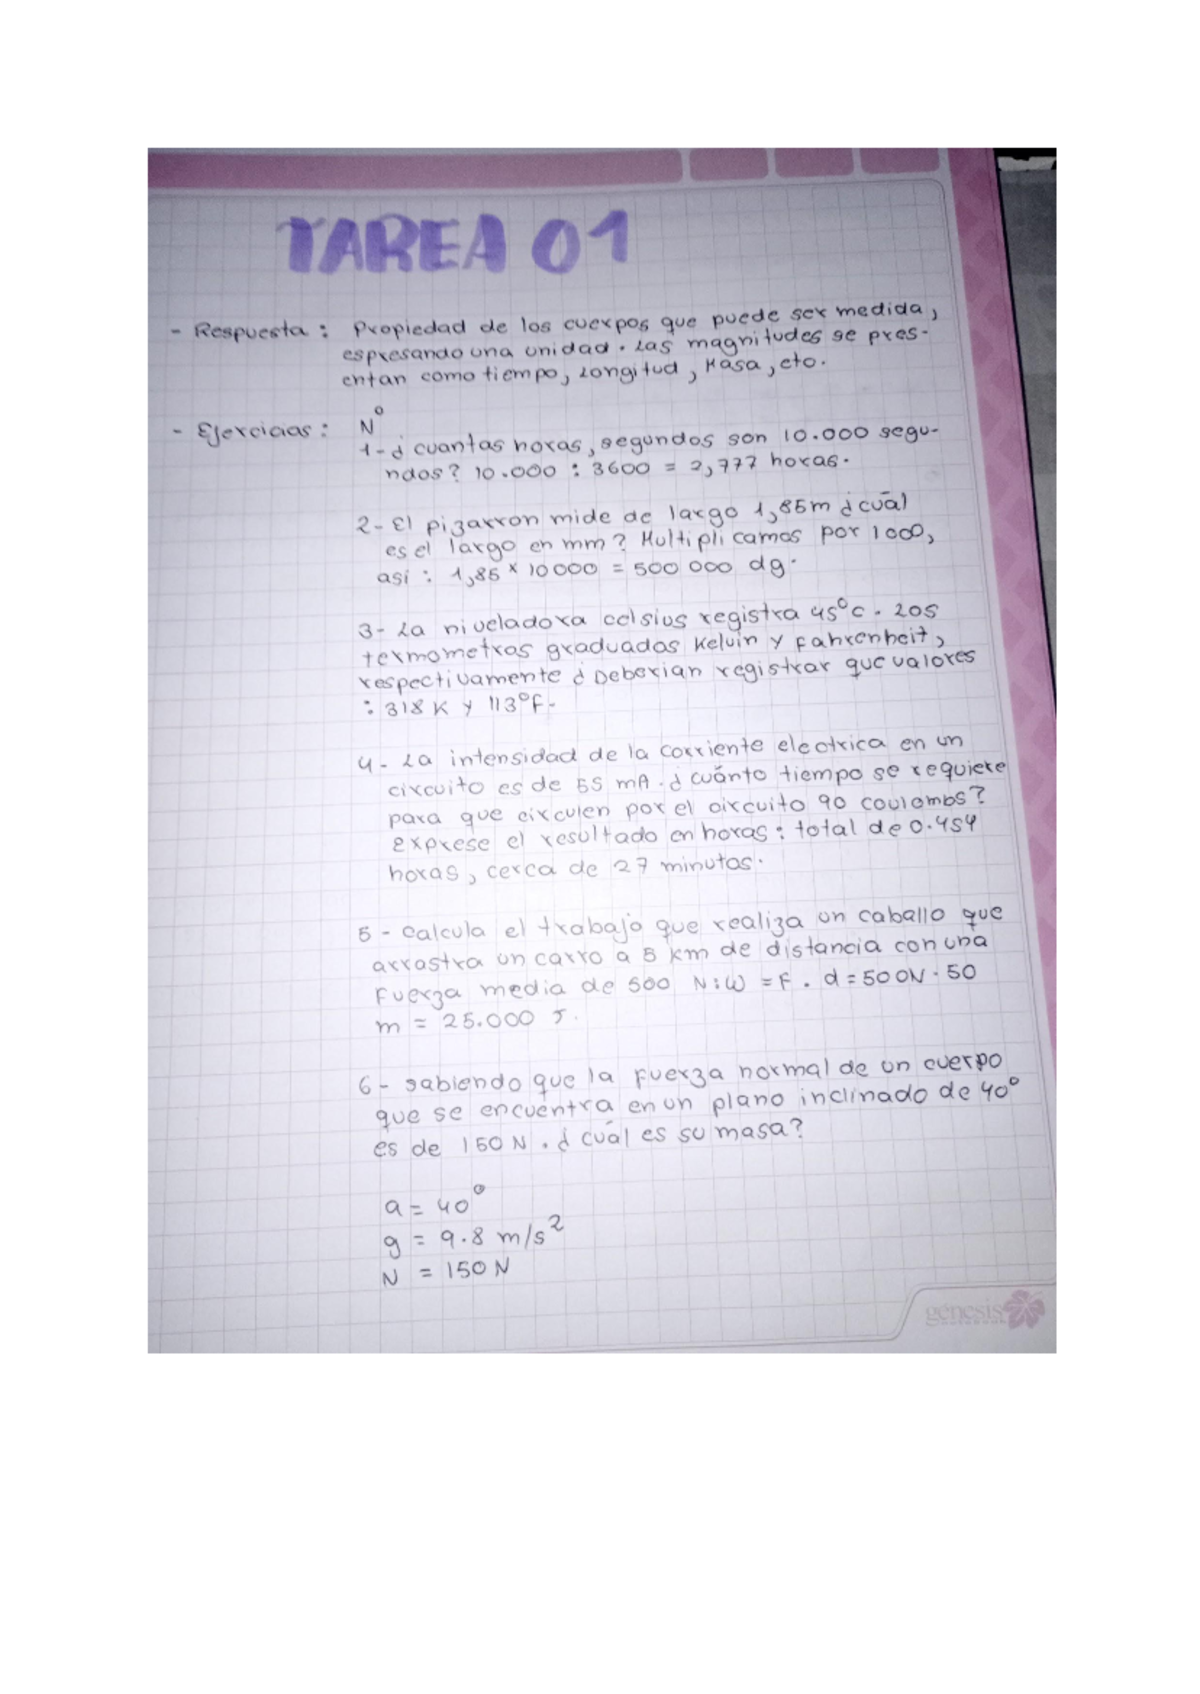 TAREA 01
- Respuesta: Propiedad de los cuerpos que puede ser medida,
espresando una unidad. Las magnitudes se pres-
entan como tiempo, Longitud, Masa, etc.
- Ejercicios: N°
1- ¿ cuantas horas, segundos son 10.000 segu-
ndos? 10.000 : 3600 = 2,777 horas.
2- El pizarron mide de largo 1,85m ¿cuál
es el largo en mm? Multiplicamos por 1000,
asi : 1,85 x 10000 = 500 000 dg.
3- La niveladora celsius registra 45°c. Los
termometros graduados Kelvin y Fahrenheit,
respectivamente ¿ Deberian registrar que valores
: 318 K y 113°F-
4- La intensidad de la corriente electrica en un
circuito es de 55 mA. ¿ cuánto tiempo se requiere
para que circulen por el circuito 90 coulombs?
exprese el resultado en horas: total de 0.454
horas, cerca de 27 minutos.
5- calcula el trabajo que realiza un caballo que
arrastra un carro a 5 km de distancia con una
Fuerza media de 500 N: W = F . d = 500N . 50
m = 25.000 J.
6- sabiendo que la fuerza normal de un cuerpo
que se encuentra en un plano inclinado de 40°
es de 150 N. ¿ cuál es su masa?
a = 40°
g = 9.8 m/s²
N = 150 N
génesis